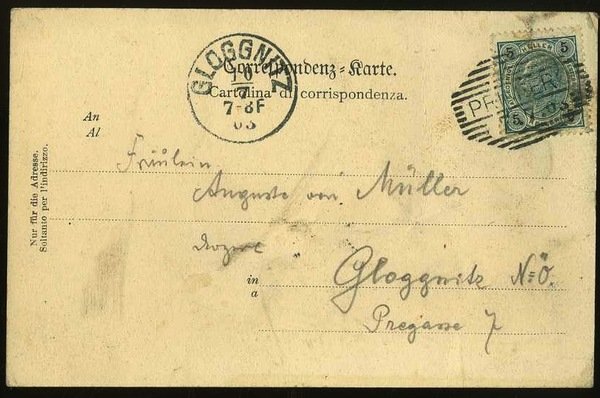 GLOGGNITZ
10
7
7-8F
03
Correspondenz-Karte.
Cartolina di corrispondenza.
5 5
5
03
An
Al
Nur für die Adresse.
Soltanto per l'indirizzo.
Fräulein
Auguste von Müller
in
a
Gloggnitz N:Ö.
7